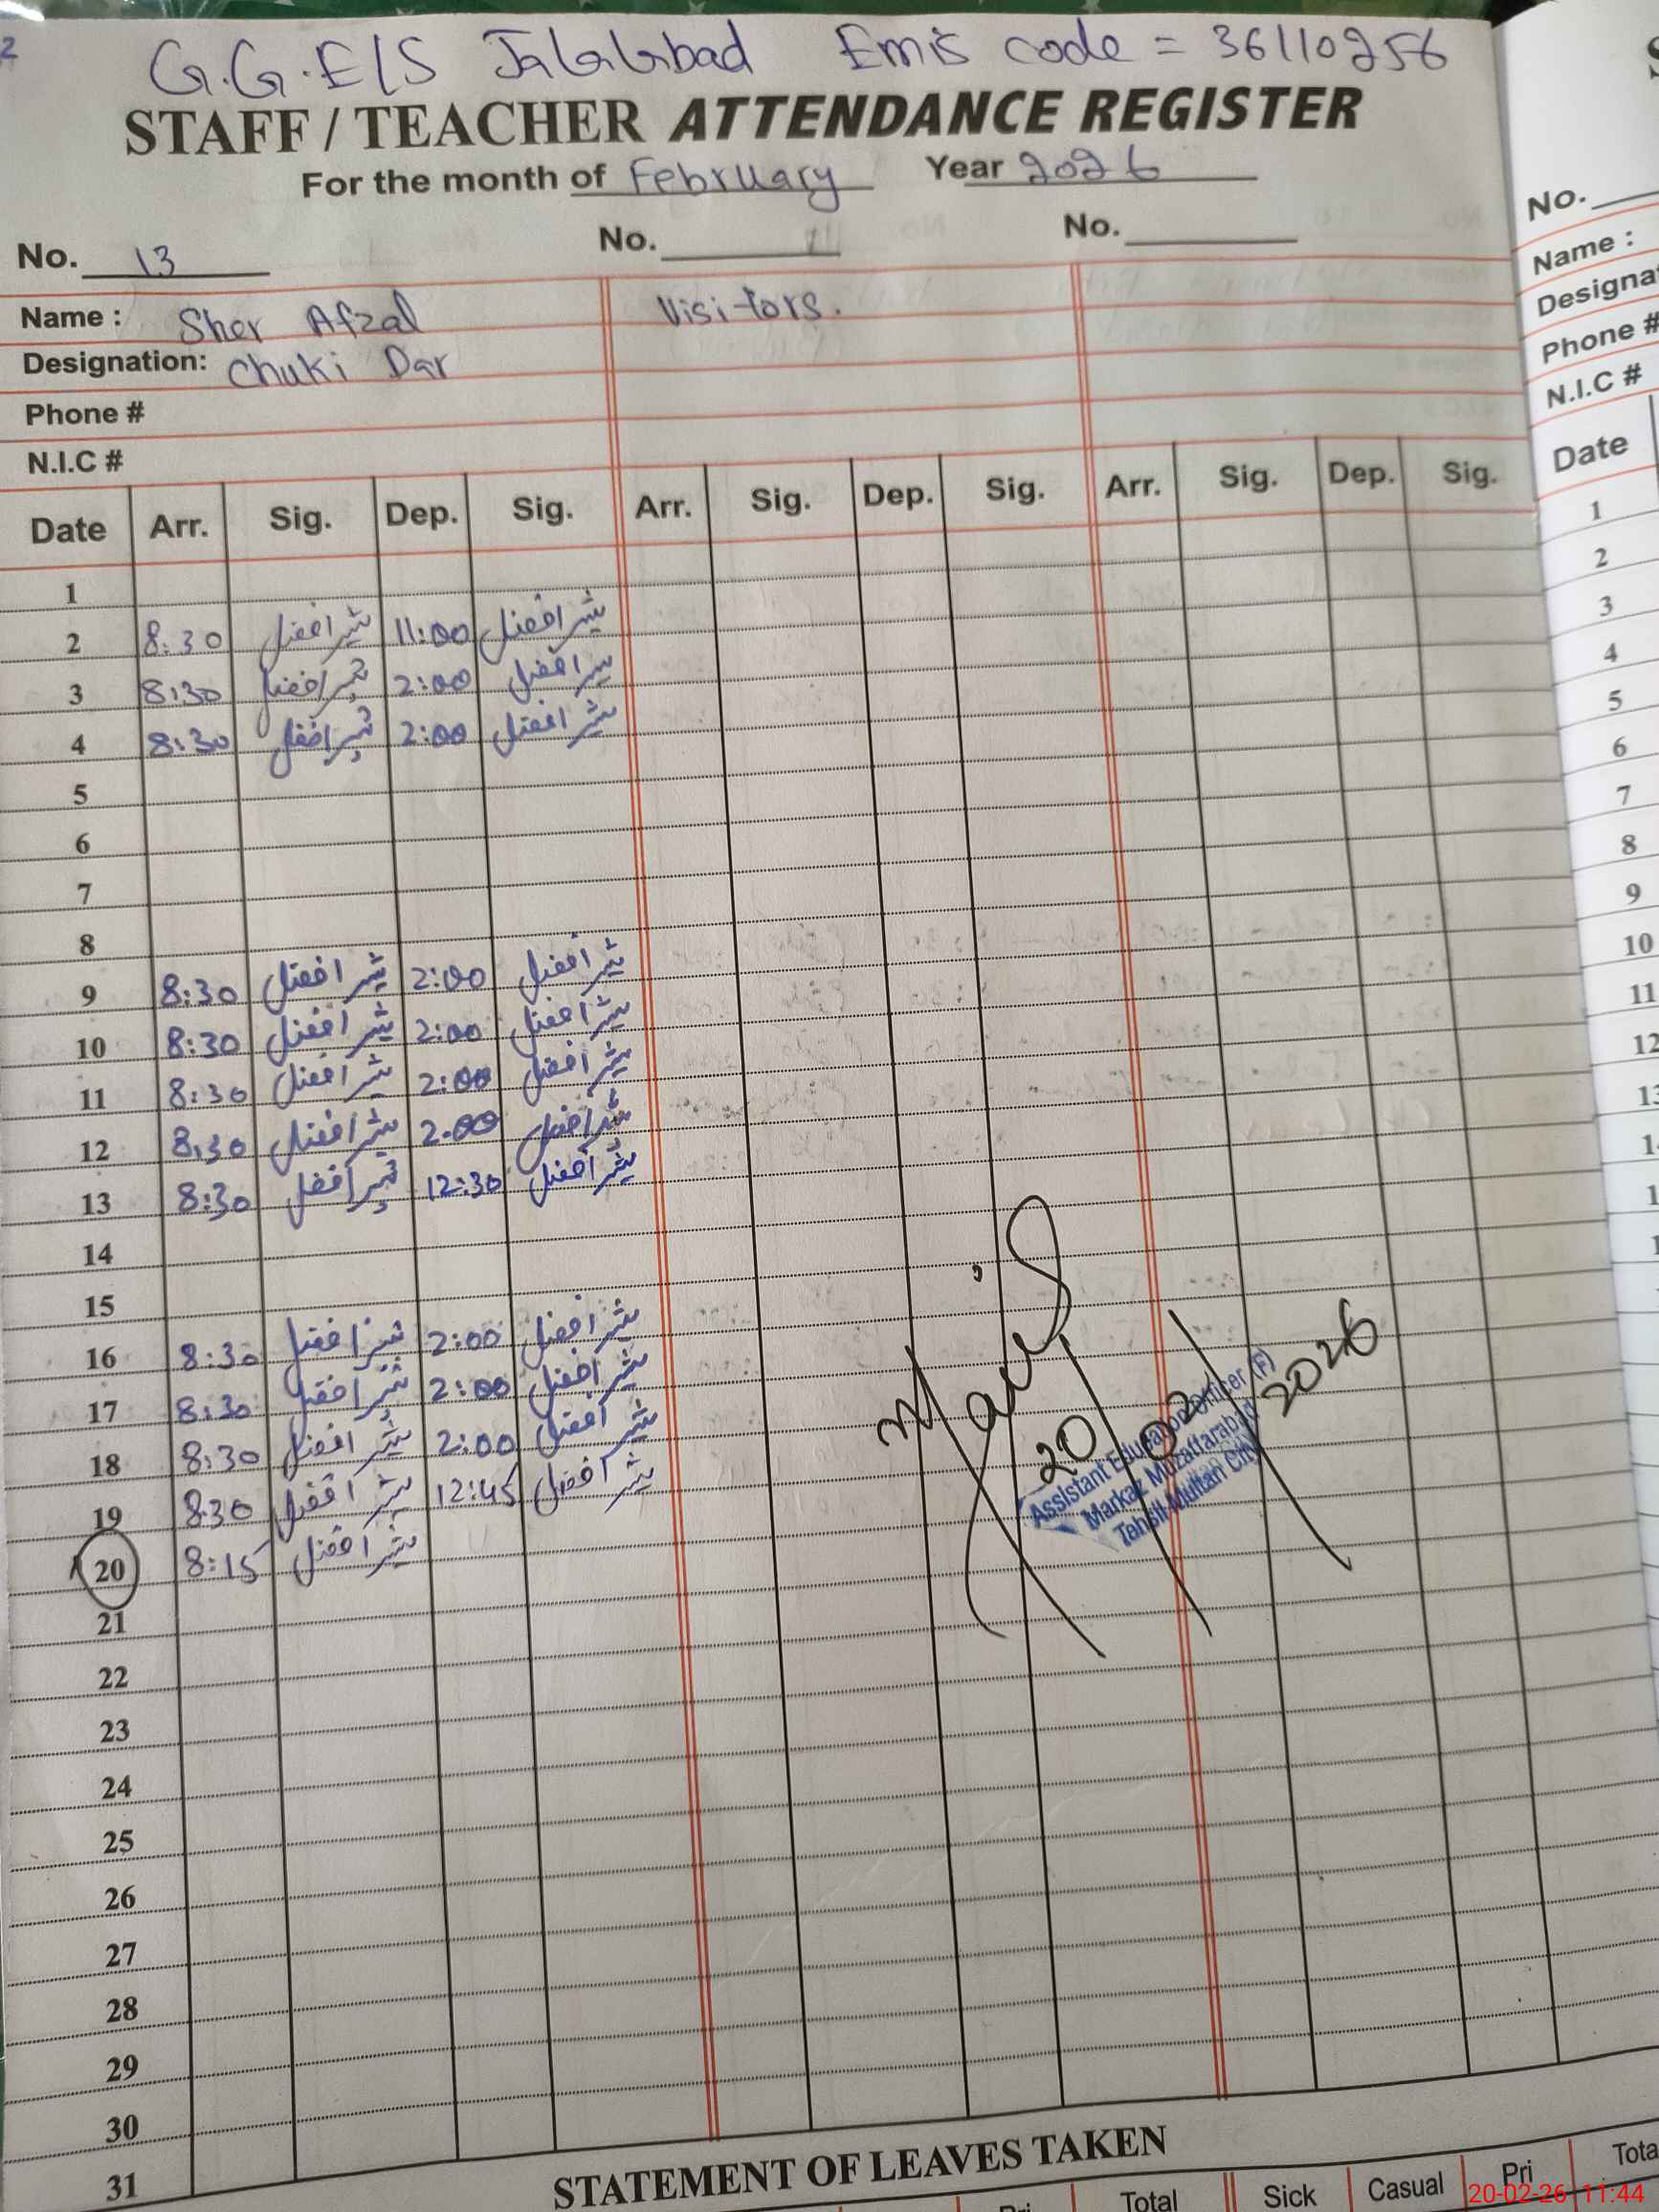 G.G.E/S Jalalabad Emis code = 36110256
STAFF / TEACHER ATTENDANCE REGISTER
For the month of February Year 2026
No. 13 No. No.
Name : Sher Afzal Visitors.
Designation: Chuki Dar
Phone #
N.I.C #
Date Arr. Sig. Dep. Sig. Arr. Sig. Dep. Sig. Arr. Sig. Dep. Sig.
1
2 8:30 شیر افضل 11:00 شیر افضل
3 8:30 شیر افضل 2:00 شیر افضل
4 8:30 شیر افضل 2:00 شیر افضل
5
6
7
8
9 8:30 شیر افضل 2:00 شیر افضل
10 8:30 شیر افضل 2:00 شیر افضل
11 8:30 شیر افضل 2:00 شیر افضل
12 8:30 شیر افضل 2:00 شیر افضل
13 8:30 شیر افضل 12:30 شیر افضل
14
15
16 8:30 شیر افضل 2:00 شیر افضل
17 8:30 شیر افضل 2:00 شیر افضل
18 8:30 شیر افضل 2:00 شیر افضل
19 8:30 شیر افضل 12:45 شیر افضل
20 8:15 شیر افضل
21
22
23
24
25
26
27
28
29
30
31
20/02/2026
Assistant Education Officer (F)
Markaz Muzaffarabad
Tehsil Multan City
STATEMENT OF LEAVES TAKEN
Pri Total Sick Casual Pri
No.
Name :
Phone #
N.I.C #
Date
1
2
3
4
5
6
7
8
9
10
11
12
20-02-26 11:44